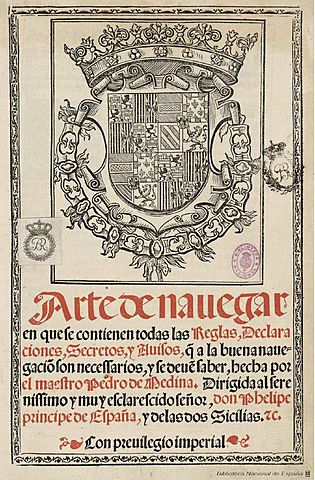 Arte de nauegar
en que se contienen todas las Reglas, Declara
ciones, Secretos, y Auisos, q̃ a la buena naue-
gaciõ son necessarios, y se deuẽ saber, hecha por
el maestro Pedro de Medina. Dirigida al sere
nissimo y muy esclarescido señor, don Phelipe
principe de España, y de las dos Sicilias. ⁊c.
Con preuilegio imperial
Biblioteca Nacional de España